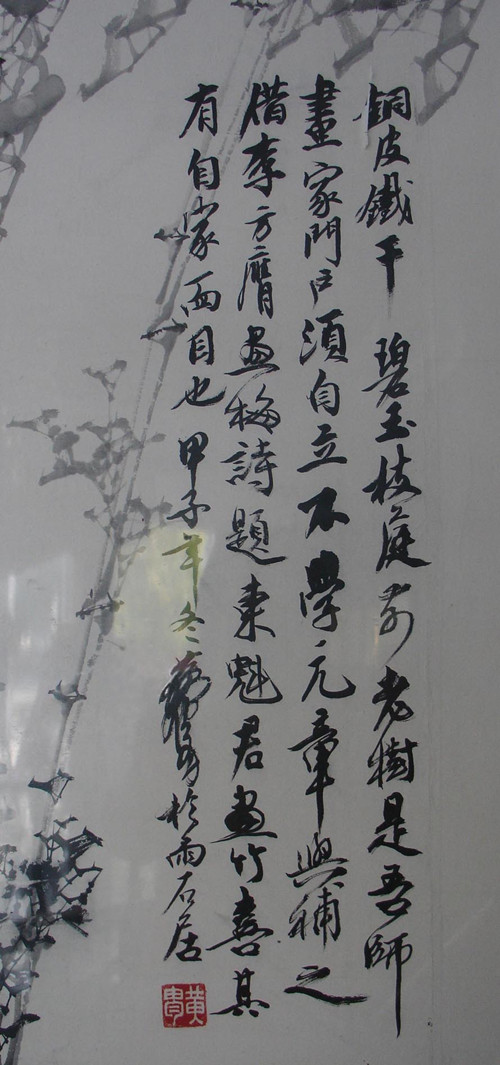 銅皮鐵干碧玉枝庭前老樹是吾師
畫家門戶須自立不學元章與補之
借李方膺畫梅詩題東魁君畫竹喜其
有自家面目也甲子年冬黃胄於雨石居
黃胄